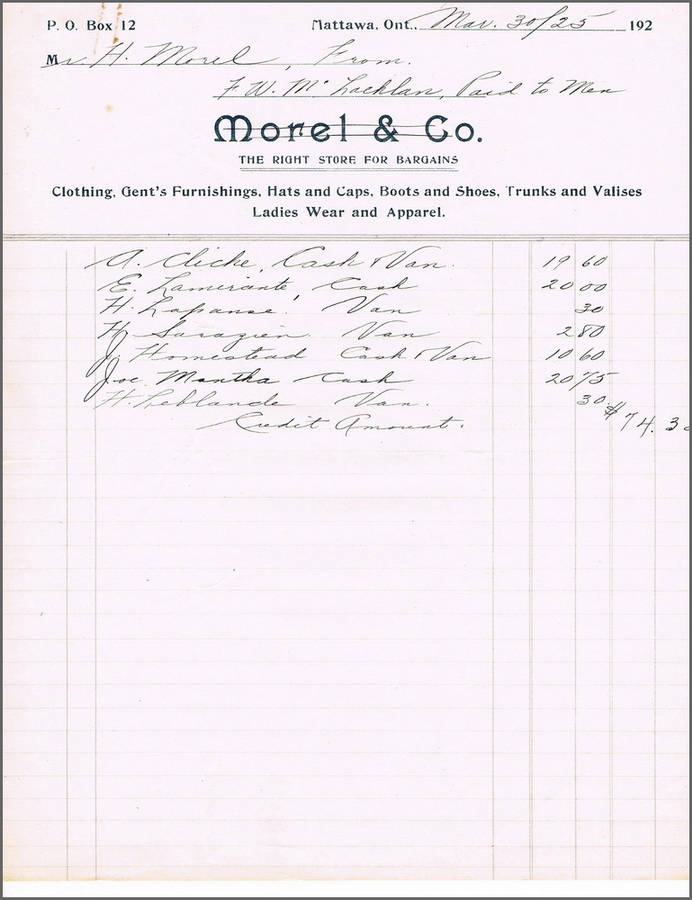 P. O. Box 12 Mattawa, Ont., Mar. 30/25 192
Mr H. Morel, From.
F. W. Mc Lachlan, Paid to Men
Morel & Co.
THE RIGHT STORE FOR BARGAINS
Clothing, Gent's Furnishings, Hats and Caps, Boots and Shoes, Trunks and Valises
Ladies Wear and Apparel.
A. Clicke, Cash & Van. 19 60
E. Lamirante, Cash 20 00
H. Lapanse. Van 30
H. Sarazien Van 2 80
J. Homestead Cash & Van 10 60
Joe. Mantha Cash 20 75
H. Leblande Van. 30
Credit Amount. $74.3